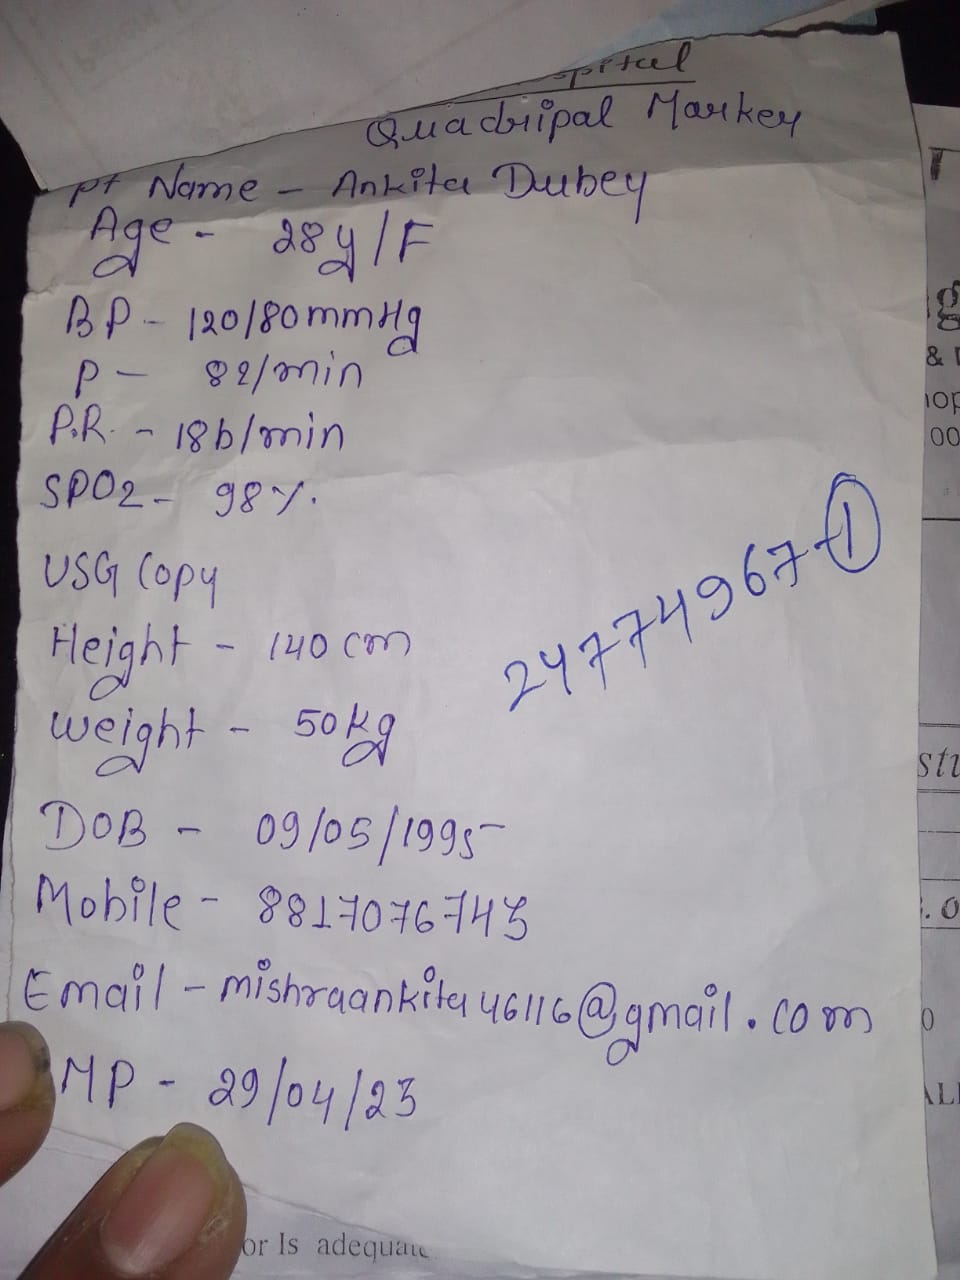 spital
Quadripal Markey
pt Name - Ankita Dubey
Age - 28y/F
BP - 120/80mmHg
P - 82/min
P.R. - 18b/min
SPO2 - 98%.
USG Copy
Height - 140 cm
24774967-1
weight - 50kg
DOB - 09/05/1995
Mobile - 8817076743
Email - mishraankita46116@gmail.com
MP - 29/04/23
or Is adequate
g
&
hop
00
stu
. 0
0
ALL